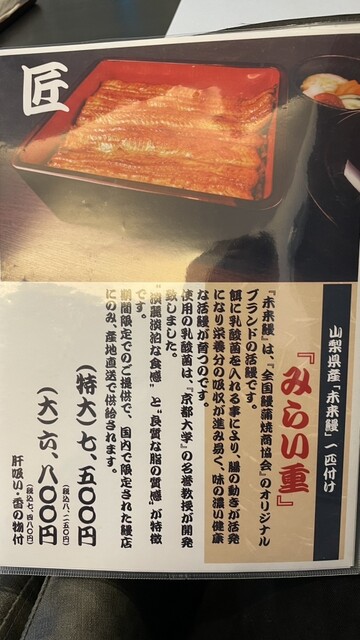 匠
山梨県産「未来鰻」一匹付け
『みらい重』
『未来鰻』は、『全国鰻蒲焼商協会』のオリジナル
ブランドの活鰻です。
餌に乳酸菌を入れる事により、腸の動きが活発
になり栄養分の吸収が進み易く、味の濃い健康
な活鰻が育つのです。
使用の乳酸菌は、『京都大学』の名誉教授が開発
致しました。
"淡麗淡泊な食感"と"良質な脂の質感"が特徴
です。
期間限定でのご提供で、国内で限定された鰻店
にのみ、産地直送で供給されます。
（特大）七、五〇〇円
（税込八、二五〇円）
（大）六、八〇〇円
（税込七、四八〇円）
肝吸い・香の物付